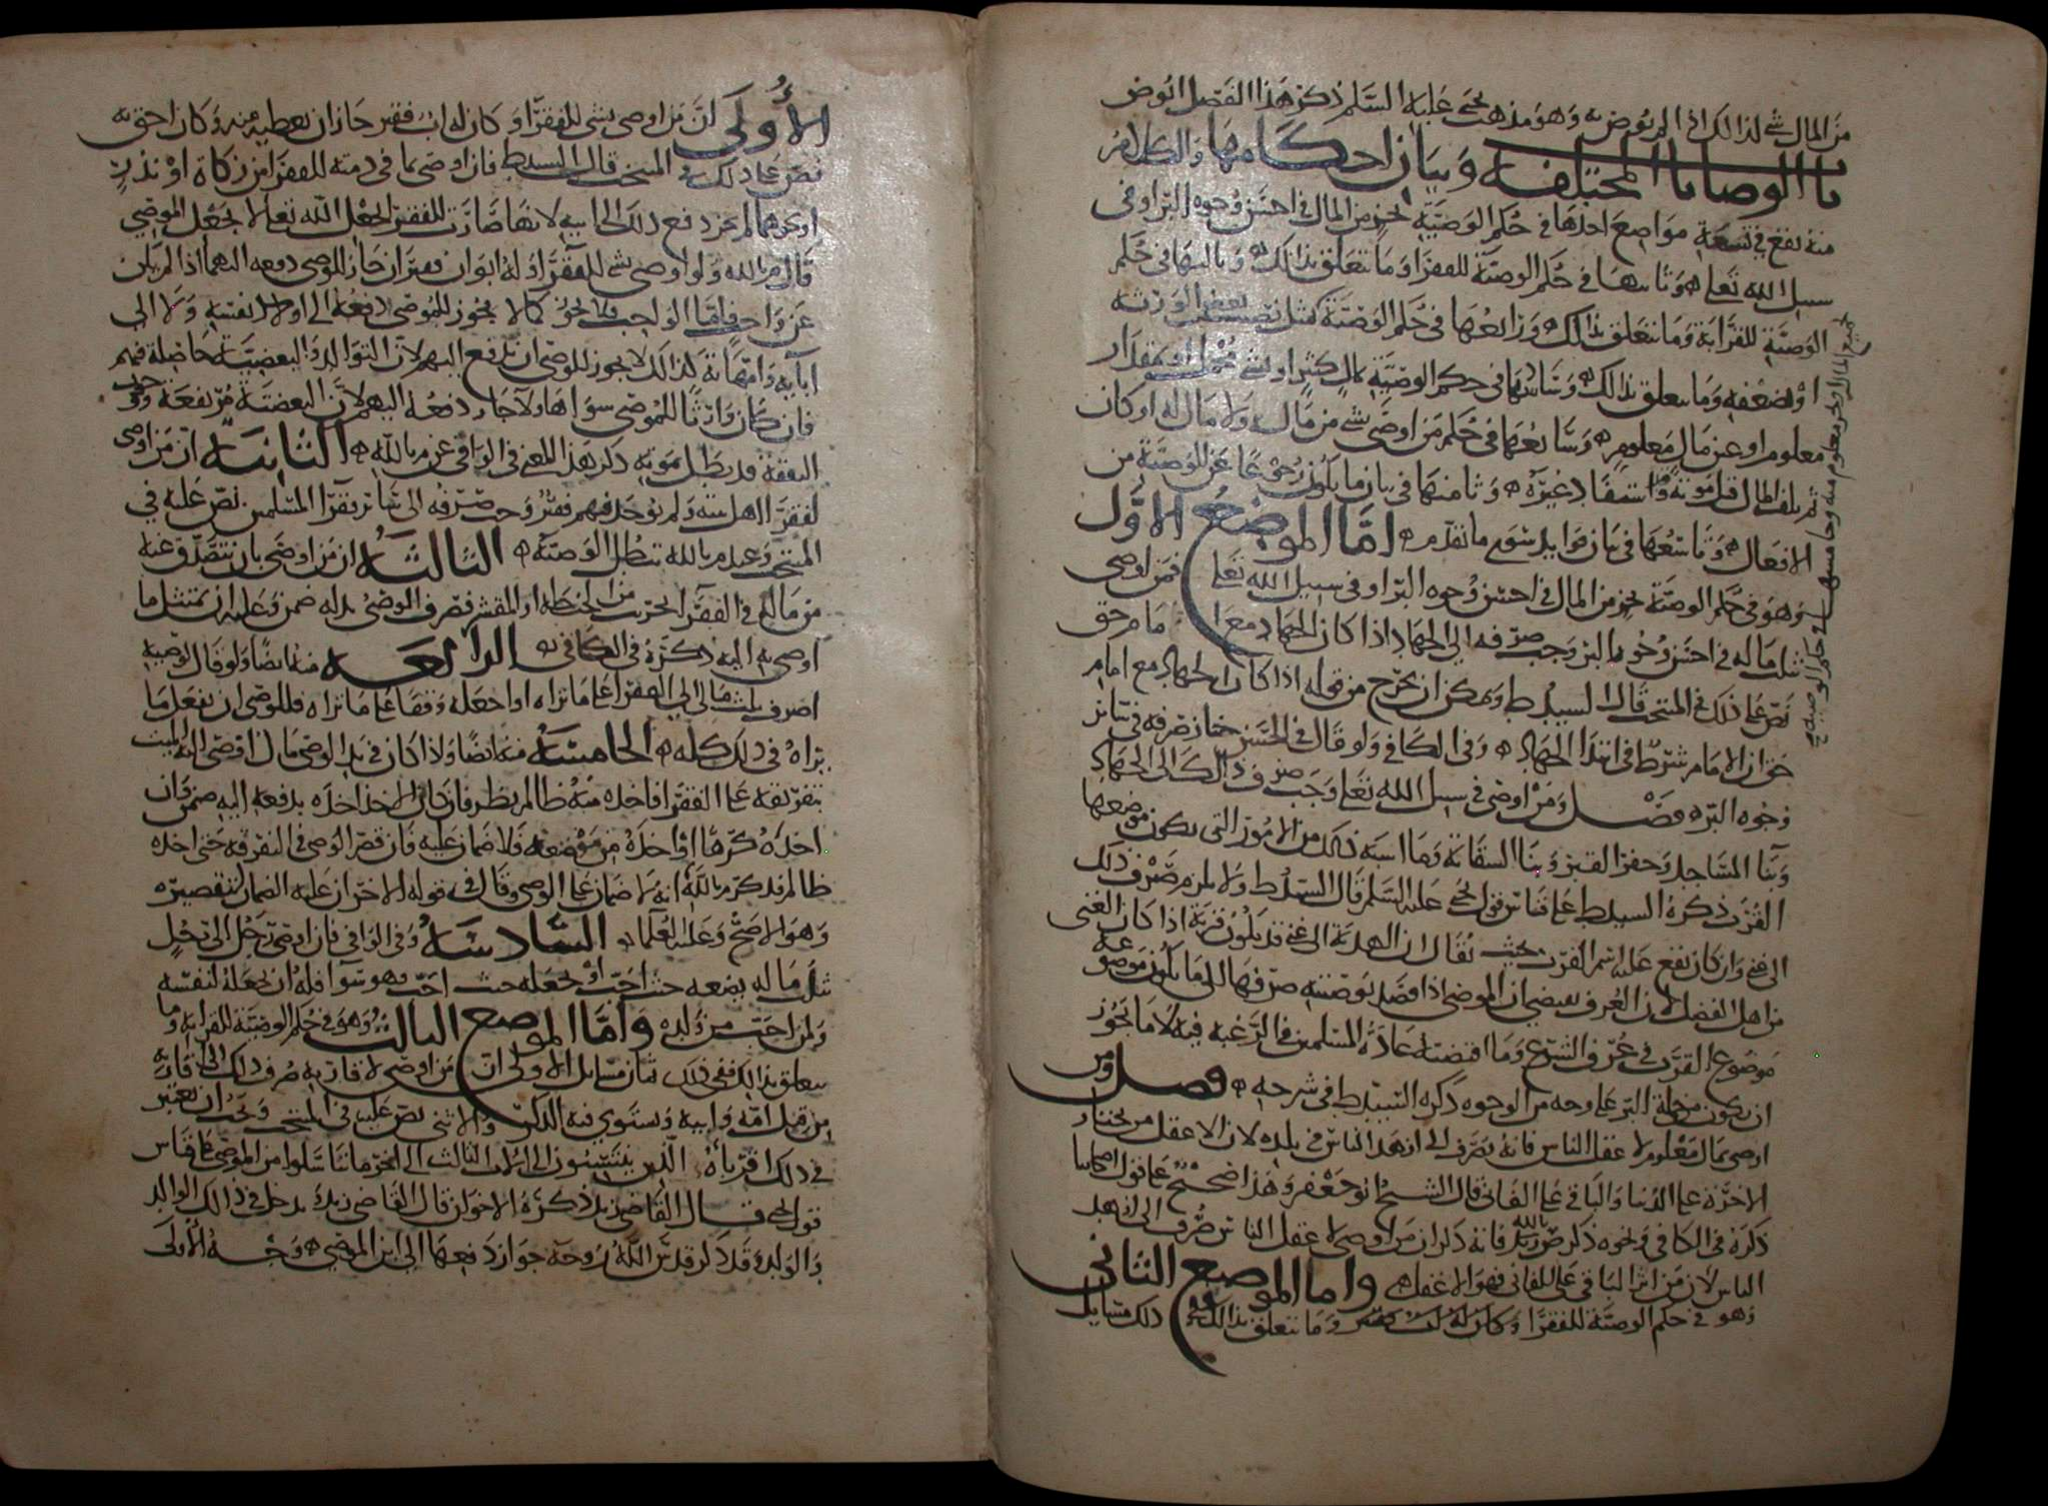 من المال شي لذلك اذا لم يعوض به وهو مذهب يحيى عليه السلم ذكر هذا الفصل ابو مضر
باب الوصايا المختلفة وبيان احكامها والكلام
منه يقع في تسعة مواضع احدها في حكم الوصية بجزء من المال في احسن وجوه البر او في
سبيل الله تعلى وثانيها في حكم الوصية للفقرا وما يتعلق بذلك وثالثها في حكم
الوصية للقرابة وما يتعلق بذلك ورابعها في حكم الوصية بمثل نصيب بعض الورثة
او ضعفه وما يتعلق بذلك وسادسها في حكم الوصية بمال كثير او بشي مجهول او بمقدار
معلوم او عن مال معلوم وسابعها في حكم من اوصى بشي من مال ولا مال له او كان
ثم تلف المال قبل موته او استفاد غيره وثامنها في بيان ما يكون رجوعا عن الوصية من
الافعال وتاسعها في بيان فوايد سوى ما تقدم اما الموضع الاول
وهو في حكم الوصية بجزء من المال في احسن وجوه البر او في سبيل الله تعلى فمن اوصى
بثلث ماله في احسن وجوه البر وجب صرفه الى الجهاد اذا كان الجهاد مع امام حق
نص على ذلك في المنتخب قال السيد ط ويمكن ان يخرج من قوله اذا كان الجهاد مع امام
حق ان الامام شرط في ابتدا الجهاد وفي الكافي ولو قال في الحسن جاز صرفه في سائر
وجوه البر فصل ومن اوصى في سبيل الله تعلى وجب صرف ذلك الى الجهاد
وبنا المساجد وحفر القبر وبنا السقاية وما اشبه ذلك من الامور التي يكون موضعها
القرب ذكره السيد ط على قياس قول يحيى عليه السلم قال السيد ط ولا يلزم صرف ذلك
الى غني وان كان يقع عليه اسم القرب بحيث يقال ان الهدية الى غني قد يكون قربة اذا كان الغني
من اهل الفضل لان العرف يقتضي ان الموصي اذا قصد بوصيته صرفها الى ما يكون موضوعه
موضوع القرب في عرف الشرع وما اقتضته عادة المسلمين في الترغيب فيه لا ما يجوز
ان يكون من جملة البر على وجه من الوجوه ذكره السيد ط في شرحه فصل ومن
اوصى بمال معلوم لاعقل الناس فانه يصرف الى ازهد الناس في بلده لان الاعقل من يختار
الاخرة على الدنيا والباقي على الفاني قال الشيخ ابو جعفر وهذا صحيح على قول اصحابنا
ذكره في الكافي ونحوه ذكر ض زيد فانه ذكر ان من اوصى لاعقل الناس صرف الى ازهد
الناس لان من اثر الباقي على الفاني فهو الاعقل واما الموضع الثاني
وهو في حكم الوصية للفقرا وما يتعلق بذلك ففي ذلك مسايل
جميع المال او بجزء معلوم منه وخامسها في حكم الوصية
الأولى ان من اوصى بشي للفقرا وكان له اب فقير جاز ان يعطيه منه وكان احق به
نص على ذلك في المنتخب قال السيد ط فان اوصى بما في ذمته للفقرا من زكاة او نذر
او نحوهما لم يجز دفع ذلك الى ابيه لانها صارت للفقرا لجعل الله تعلى لا لجعل الموصي
قال م بالله ولو اوصى بشي للفقرا وله ابوان فقيران جاز للوصي دفعه اليهما اذا لم يكن
عن واجب فاما الواجب فلا يجوز كما لا يجوز للموصي دفعه الى اولاد نفسه ولا الى
آبايه وامهاته لذلك لا يجوز للوصي ان يدفع اليهم لان التوالد والبعضية حاصلة فيهم
فان كان وارثا للموصي سواها ولا جاز دفعه اليهم لان البعضية مرتفعة ووجوب
النفقة قد بطل بموته ذكر هذا المعنى في الوافي عن م بالله الثانية ان من اوصى
لفقرا اهل بيته ولم يوجد فيهم فقير وجب صرفه الى سائر فقرا المسلمين نص عليه في
المنتخب وعند م بالله تبطل الوصية الثالثة ان من اوصى بان يتصدق عنه
من ماله في الفقرا بحريب من الحنطة او المقشر فصرف الوصي بدله ضمن وعليه ان يمتثل ما
اوصى به اليه ذكره في الكافي الرابعة منه ايضا ولو قال لوصيه
اصرف ثلث مالي الى الفقرا على ما تراه او اجعله وقفا على ما تراه فللوصي ان يفعل ما
يراه في ذلك كله الخامسة منه ايضا واذا كان في يد الوصي مال اوصى اليه الميت
بتفرقته على الفقرا فاخذه منه ظالم نظر فان كان الاخذ اخذه بدفعه اليه ضمن وان
اخذه كرها او اخذه من موضعه فلا ضمان عليه وان قصر الوصي في التفرقة حتى اخذه
ظالم فذكر م بالله انه لا ضمان على الوصي وقال في قوله الاخر ان عليه الضمان لتقصيره
وهو الاصح وعليه العلما السادسة وفي الوافي فان اوصى رجل الى رجل
ثلث ماله يضعه حيث احب او يجعله حيث احب فهو سوا فله ان يجعله لنفسه
ولمن احب من ولده واما الموضع الثالث وهو في حكم الوصية للقرابة وما
يتعلق بذلك ففي ذلك ثمان مسايل الاولى ان من اوصى لاقاربه صرف ذلك الى اقاربه
من قبل امه وابيه ويستوي فيه الذكر والانثى نص عليه في المنتخب ويجب ان يعتبر
في ذلك اقرباه الذين ينتسبون الى الاب الثالث الى اخر ما تناسلوا من الموصي على قياس
قول يحيى قال القاضي زيد ذكره الاخوان قال القاضي زيد يدخل في ذلك الوالد
والولد وقد ذكر قدس الله روحه جواز دفعها الى ابن الموصي وجه الاولى